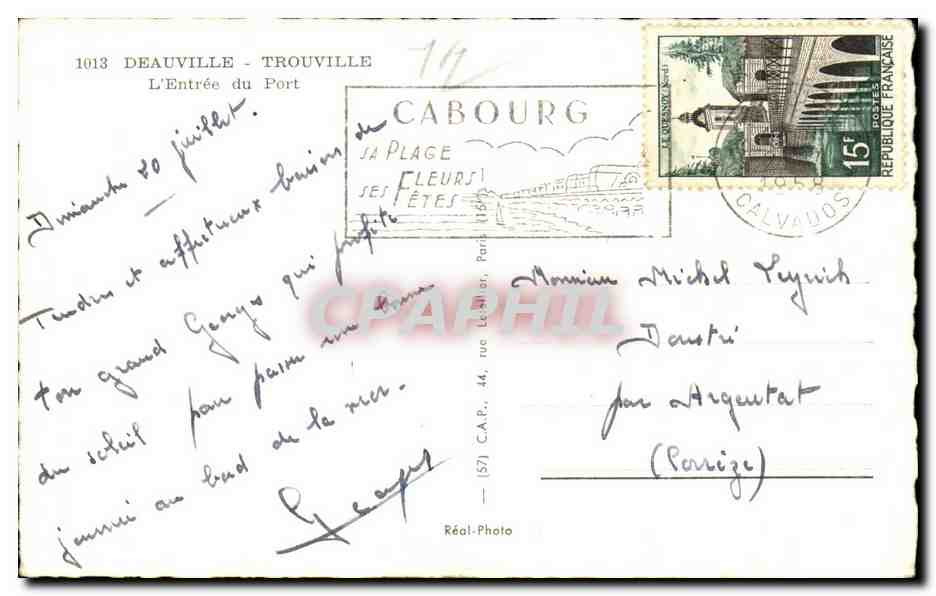 1013 DEAUVILLE - TROUVILLE
L'Entrée du Port
19
CABOURG
SA PLAGE
SES FLEURS
FÊTES
LE QUESNOY (Nord)
15F
POSTES
REPUBLIQUE FRANÇAISE
1958
CALVADOS
Dimanche 20 juillet.
Tendres et affectueux baisers de
ton grand Georges qui profite
du soleil pour passer une bonne
journée au bord de la mer.
Georges
CPAPHIL
(57) C.A.P., 44, rue Letellier, Paris (15e)
Réal-Photo
Monsieur Michel
Doustré
par Argentat
(Corrèze)